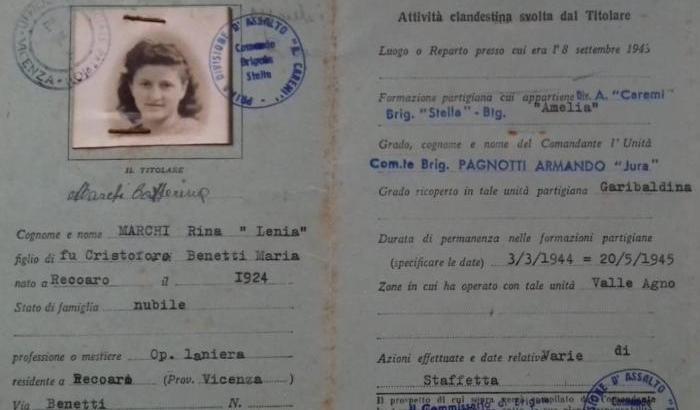 DIVISIONE D'ASSALTO "A. CAREMI"
Comando
Brigata
Stella
IL TITOLARE
Marchi Catterina
Cognome e nome MARCHI Rina "Lenia"
figlio di fu Cristoforo Benetti Maria
nato a Recoaro il 1924
Stato di famiglia nubile
professione o mestiere Op. laniera
residente a Recoaro (Prov. Vicenza)
Via Benetti N.
Attività clandestina svolta dal Titolare
Luogo o Reparto presso cui era l'8 settembre 1943
Formazione partigiana cui appartiene Div. A. "Caremi"
Brig. "Stella" - Btg. "Amelia"
Grado, cognome e nome del Comandante l'Unità
Com.te Brig. PAGNOTTI ARMANDO "Jura"
Grado ricoperto in tale unità partigiana Garibaldina
Durata di permanenza nelle formazioni partigiane
(specificare le date) 3/3/1944 = 20/5/1945
Zone in cui ha operato con tale unità Valle Agno
Azioni effettuate e date relative Varie di
Staffetta
Il prospetto di cui sopra
Il Commissario di Brigata
D'ASSALTO
Comando